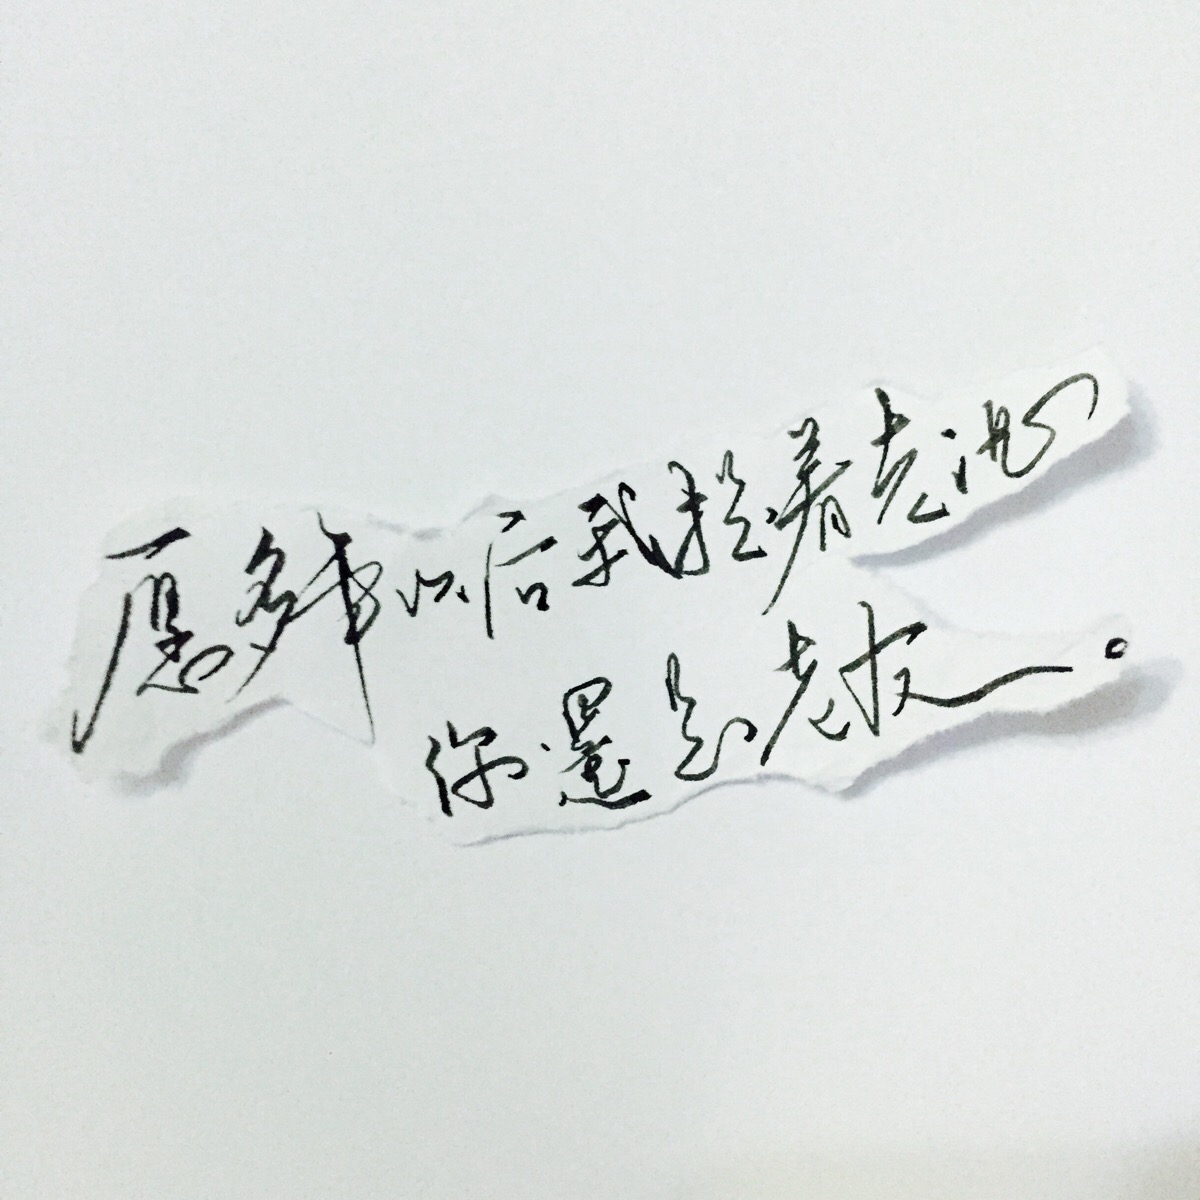 愿多年以后我提着老酒
你還是老友。